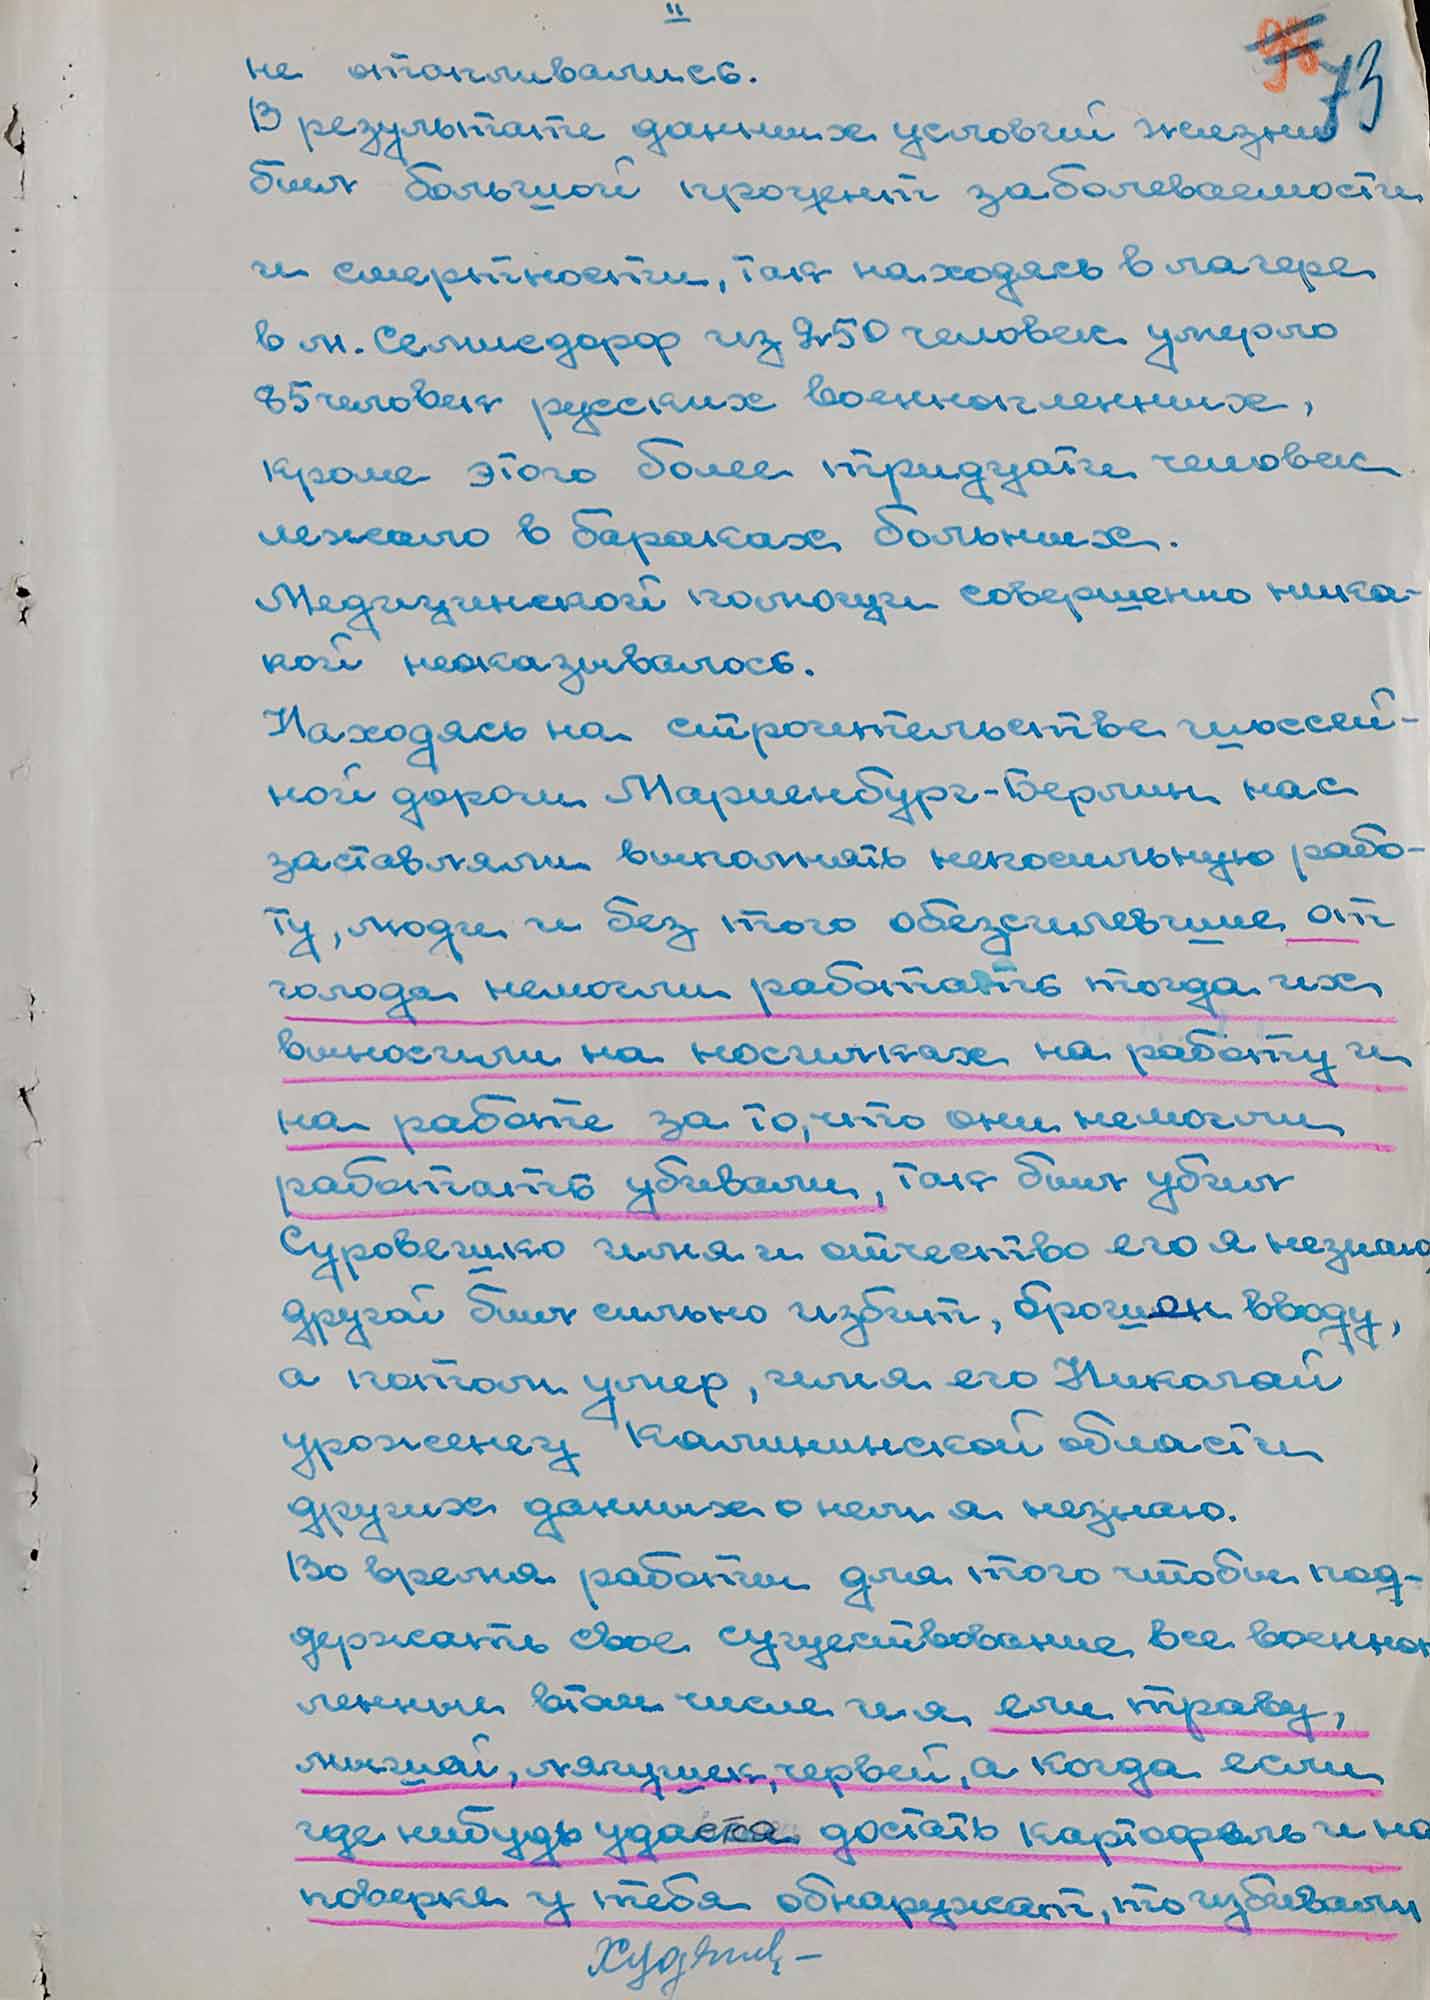 "
98 73
не отапливались.
В результате данных условий жизни
был большой процент заболеваемости
и смертности, так находясь в лагере
в м. Семисдорф из 250 человек умерло
85 человек русских военнопленных,
кроме этого более тридцати человек
лежало в бараках больных.
Медицинской помощи совершенно ника-
кой неоказывалось.
Находясь на строительстве шоссей-
ной дороги Мариенбург-Берлин нас
заставляли выполнять непосильную рабо-
ту, люди и без того обезсилевшие от
голода немогли работать тогда их
выносили на носилках на работу и
на работе за то, что они немогли
работать убивали, так был убит
Суровешко имя и отчество его я незнаю
другой был сильно избит, брошен вводу,
а потом умер, имя его Николай
уроженец Калининской области
других данных о нем я незнаю.
Во время работы для того чтобы под-
держать свое существование все военноп
ленные втом числе и я ели траву,
мышей, лягушек, червей, а когда если
где нибудь удастся достать картофель и на
поверке у тебя обнаружат, то избивали